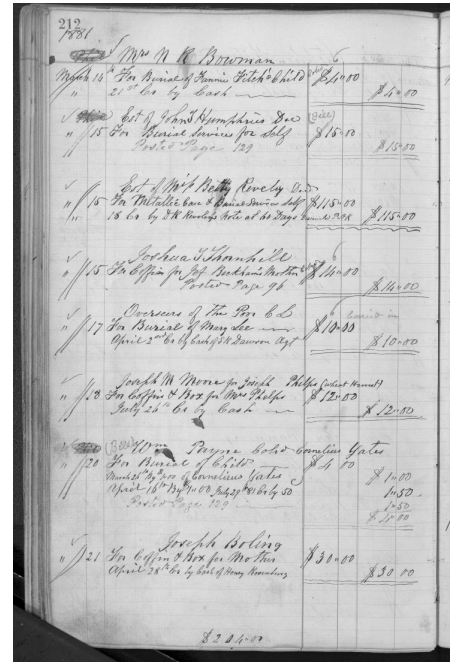 212
1881
Mrs N R Bowman
March 14 For Burial of Fannie Fitch's Child $4.00
" 21st Cr by Cash $4.00
Est of John T Humphries Dec
" 15 For Burial Services for Self $15.00
Posted Page 129 $15.00
Est of Mrs Betty Revely Dec
" 15 For Metallic Case & Burial Services Self $115.00
15 Cr by Note at 60 Days $115.00
Joshua T Thornhill
" 15 For Coffin for Jof Beckham's Mother $14.00
Posted Page 96 $14.00
Overseers of the Poor C L
" 17 For Burial of Mary Lee $10.00
April 2nd Cr by Cash of Dawson Agt $10.00
Joseph M Moore for Joseph Phelps
" 18 For Coffin & Box for Mrs Phelps $12.00
July 24th Cr by Cash $12.00
Wm Payne Cold Cornelius Yates
" 20 For Burial of Child $4.00
March 26th By of Cornelius Yates $1.00
April 16th By $1.00 July 29th 81 Cr by 50 1.50
Posted Page 129 1.50
$1.00
Joseph Boling
" 21 For Coffin & Box for Mother $30.00
April 28th Cr by Cash of Henry $30.00
$204.00